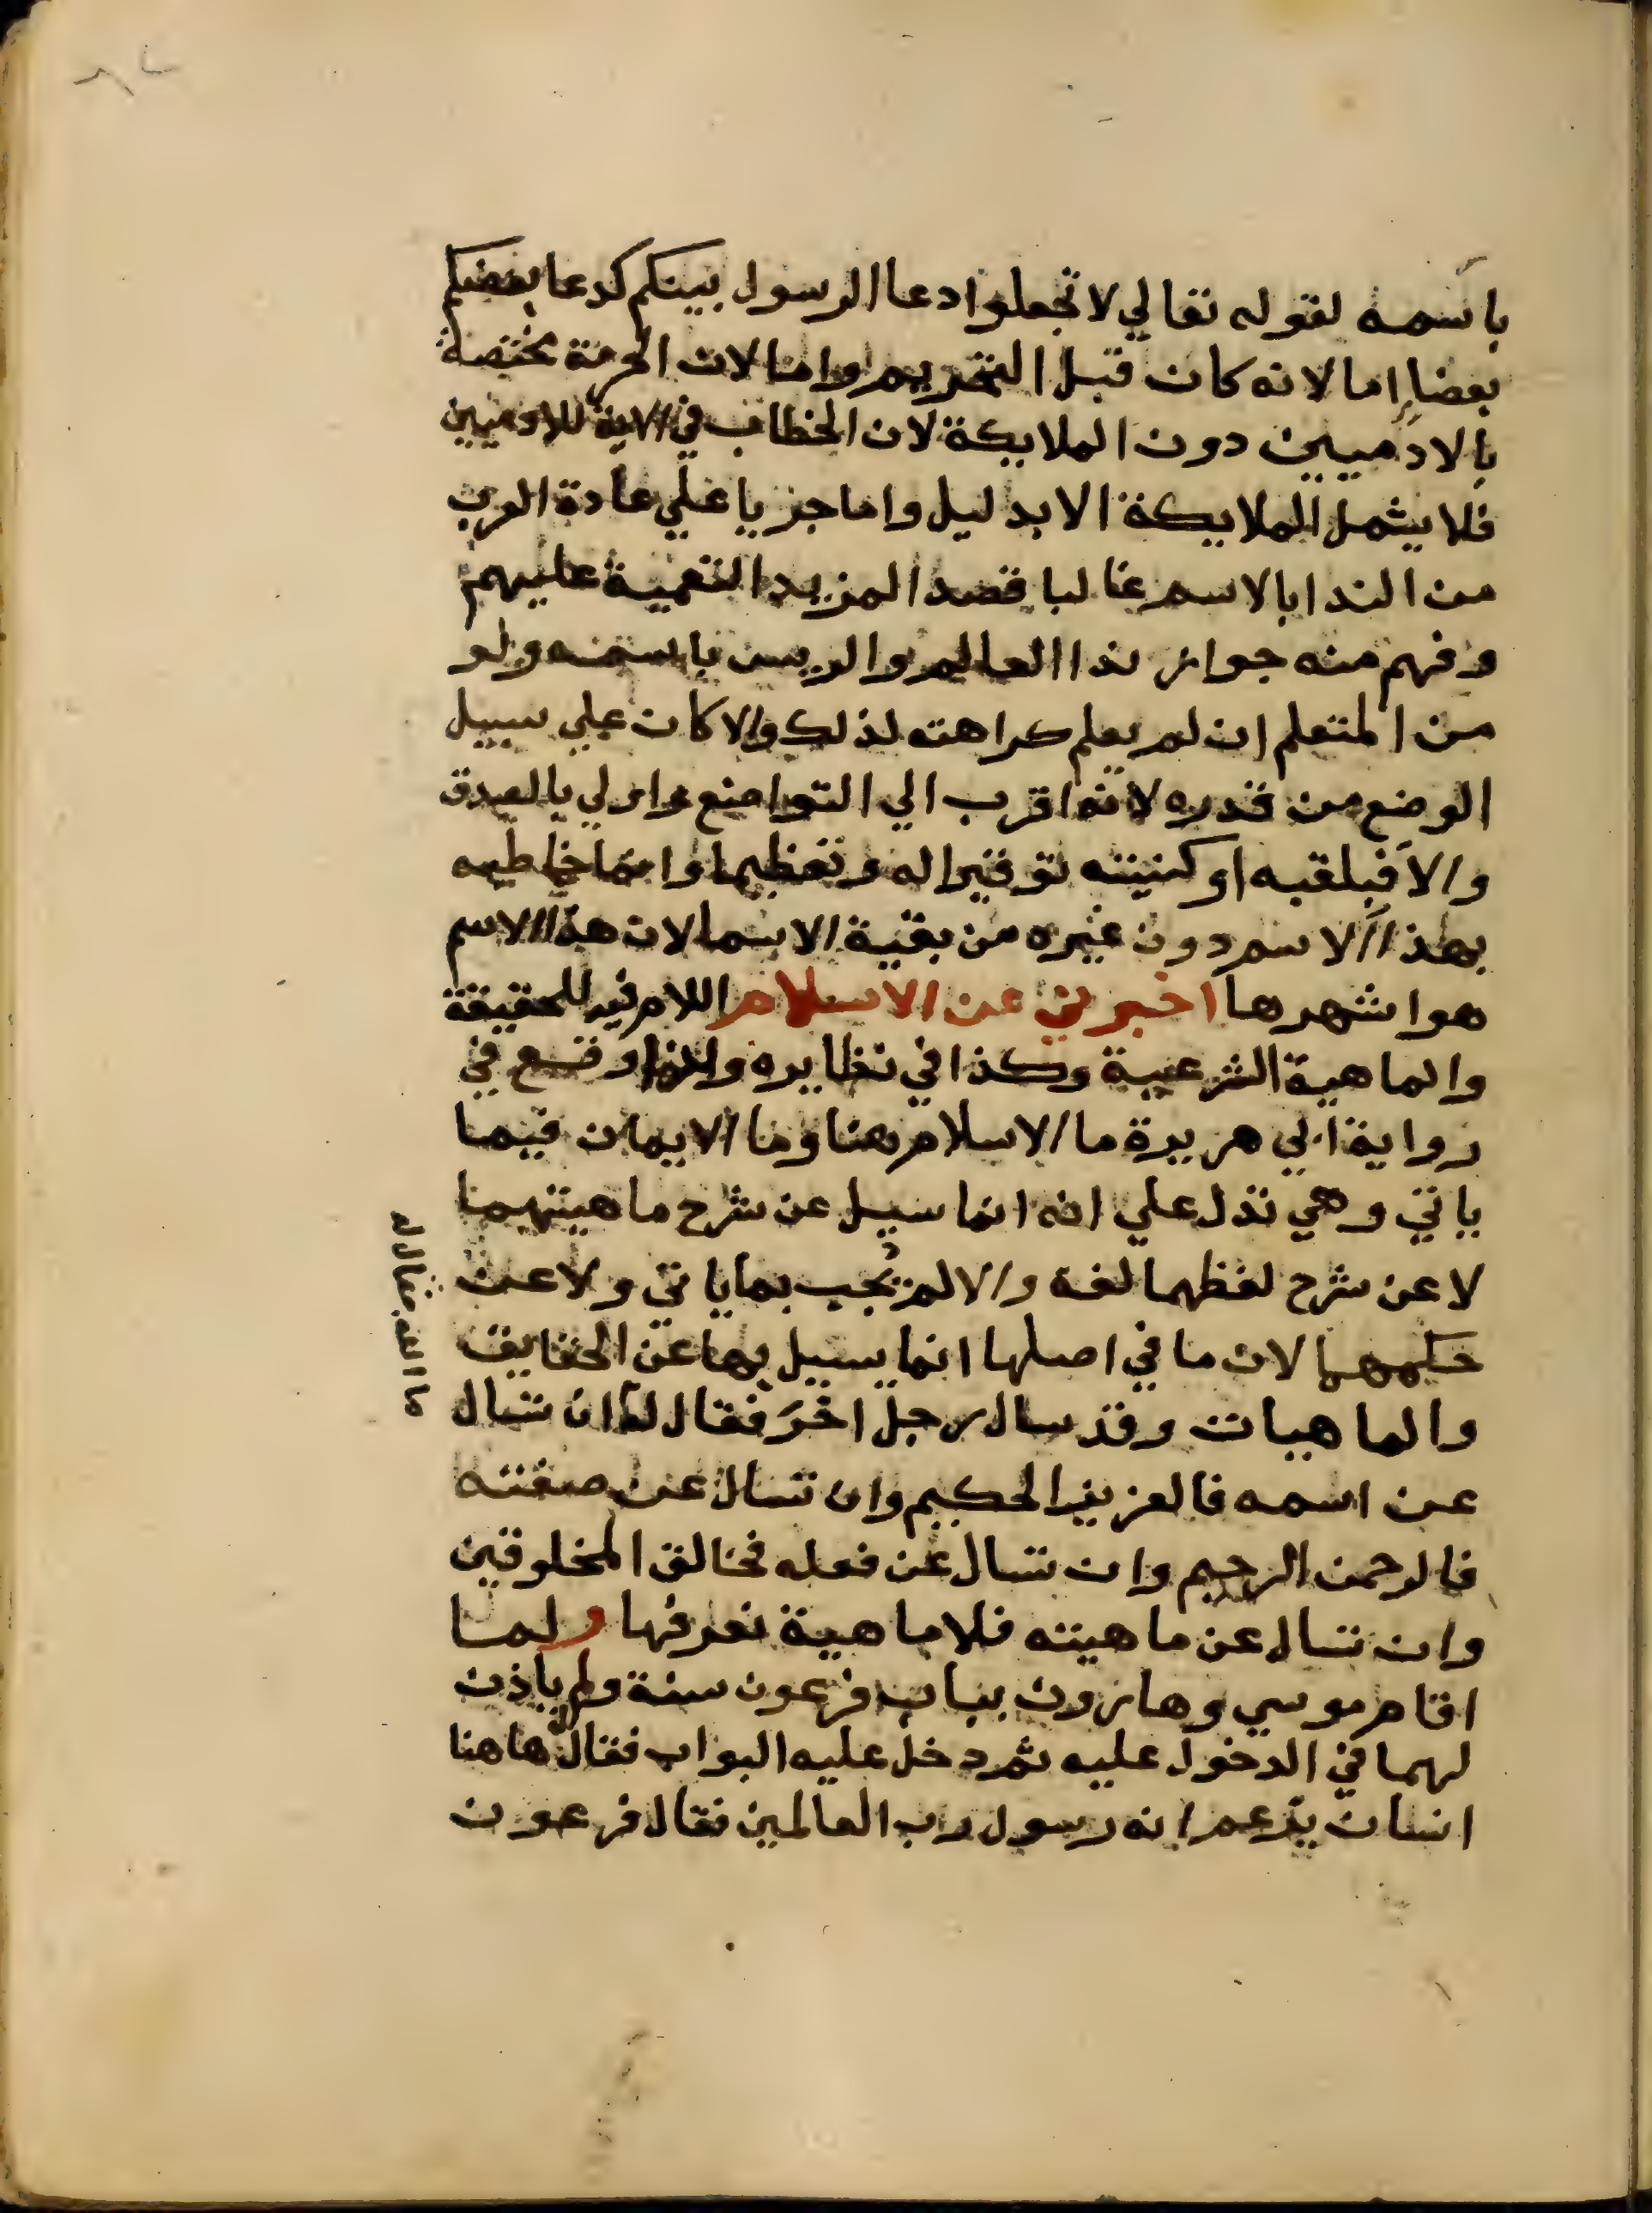 باسمه لقوله تعالي لا تجعلوا دعا الرسول بينكم كدعا بعضكم
بعضا اما لانه كان قبل التحريم واما لان الحرمة مختصة
بالادميين دون الملايكة لان الخطاب في الاية للادميين
فلا يشمل الملايكة الا بدليل واما جريا علي عادة العرب
من الندا بالاسم غالبا قصدا لمزيد التعمية عليهم
وفهم منه جواز ندا العالم والريس باسمه ولو
من المتعلم ان لم يعلم كراهته لذلك والا كان علي سبيل
الوضع من قدره لانه اقرب الي التواضع واولي بالصدق
والا فبلقبه او كنيته توقيرا له وتعظيما وانما خاطبه
بهذا الاسم دون غيره من بقية الاسما لان هذا الاسم
هو اشهرها اخبرني عن الاسلام اللام فيه للحقيقة
والماهية الشرعية وكذا في نظايره وانما وقع في
رواية ابي هريرة ما الاسلام هنا وما الايمان فيما
ياتي وهي تدل علي انه انما سيل عن شرح ماهيتهما
لا عن شرح لفظهما لغة والا لم يجب بما ياتي ولا عن
حكمهما لان ما في اصلها انما يسيل بها عن الحقايق
والماهيات وقد سال رجل اخر فقال له ان تسال
عن اسمه فالعزيز الحكيم وان تسال عن صفته
فالرحمن الرحيم وان تسال عن فعله فخالق المخلوقين
وان تسال عن ماهيته فلا ماهية نعرفها ولما
اقام موسي وهارون بباب فرعون سنة ولم ياذن
لهما في الدخول عليه ثم دخل عليه البواب فقال هاهنا
انسان يزعم انه رسول رب العالمين فقال فرعون